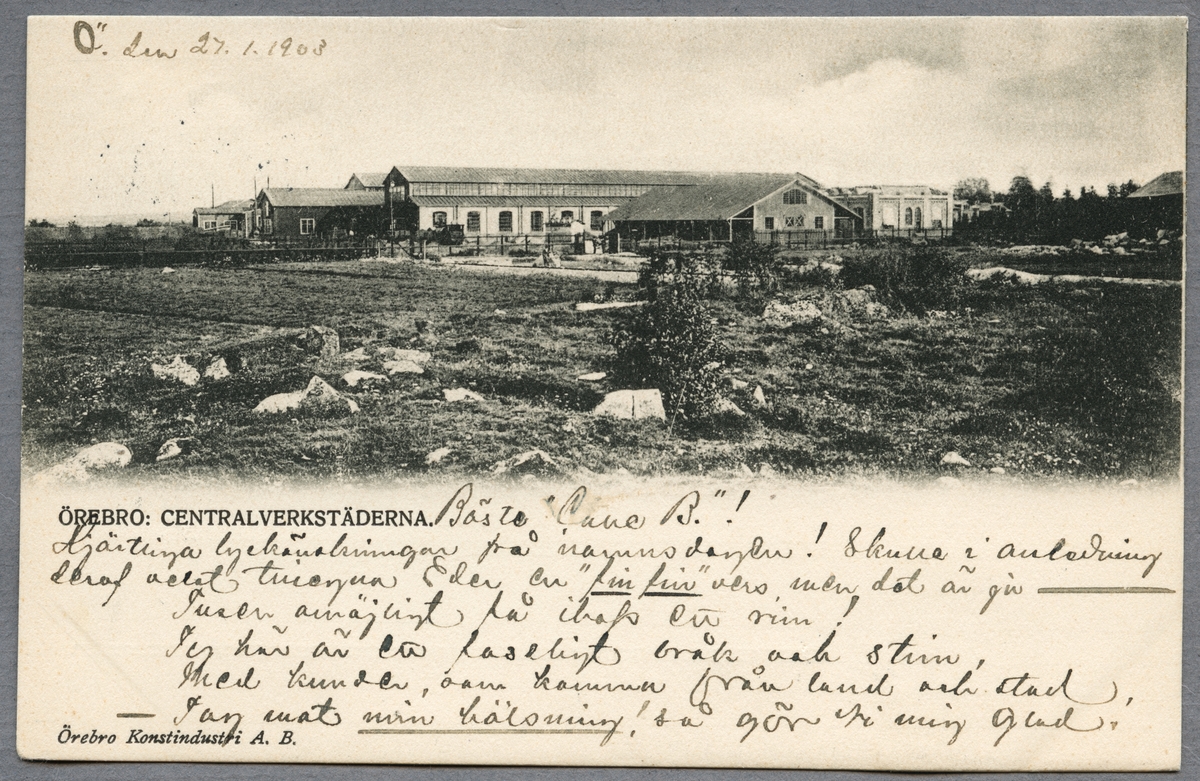 Ö". den 27.1.1903
ÖREBRO: CENTRALVERKSTÄDERNA. Bäste "Cane B."!
Hjärtliga lyckönskningar på namnsdagen! Skulle i anledning
deraf velat tillegna Eder en "fin fin" vers, men det är ju
Tusen omöjligt få ihop ett rim!
Ty här är ett faseligt bråk och stim,
Med kunder, som komma från land och stad,
— Tag mot min hälsning! så gör Ni mig glad.
Örebro Konstindustri A. B.